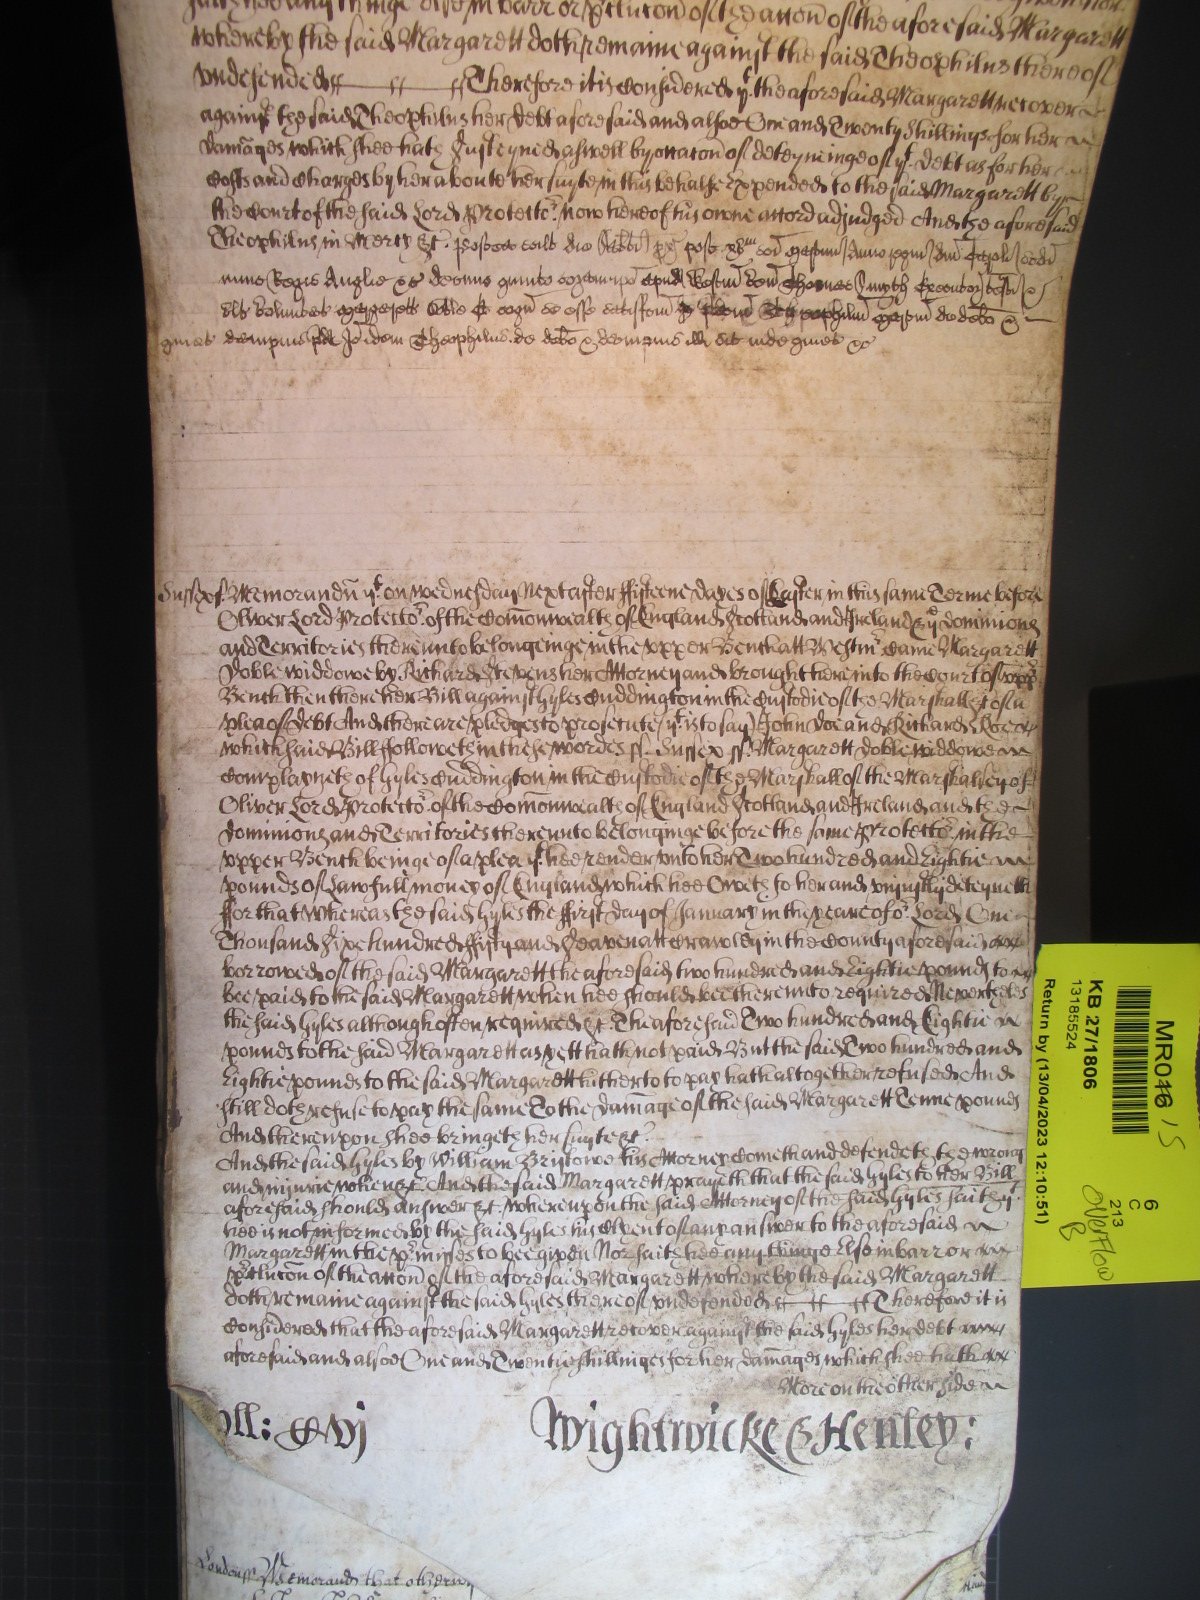 saith hee any thinge else in barr or p'clucon of the accon of the aforesaid Margarett
whereby the said Margarett doth remaine against the said Theophilus thereof
vndefended Therefore it is Considered yt the aforesaid Margarett recover
against the said Theophilus her debt aforesaid and alsoe One and Twenty shillings for her
damages which shee hath susteyned aswell by occacon of deteyneinge of yt debt as for her
Costs and Charges by her aboute her suyte in this behalfe expended to the said Margarett by
the Court of the said Lord Protector now here of his owne accord adjudged And the aforesaid
Theophilus in Mercy &c.
nunc Regis Anglie &c decimo quinto Thomas Smyth Executor
Theophilum de debo
quiet Theophilus de debo & dampnis sit inde quiet &c
Sussex ss. Memorandu yt on wednesday next after ffifteene dayes of Easter in this same Terme before
Oliver Lord Protector of the Comonwealth of England Scotland and Ireland & ye dominions
and Territories thereunto belongeinge in the vpper Bench att Westmr Came Margarett
Doble widdowe by Richard Stepens her Attorney and brought here into the Court of vpper
Bench then there her Bill against Gyles Cuddington in the Custodie of the Marshall &c of a
plea of debt And there are pledges to prosecute (yt is to say) John Doe and Richard Roe
which said Bill followeth in these wordes ss. Sussex ss. Margarett Doble widdowe
Complayneth of Gyles Cuddington in the Custodie of the Marshall of the Marshalsey of
Oliver Lord Protector of the Comonwealth of England Scotland and Ireland and the
Dominions and Territories thereunto belonginge before the same Protector in the
vpper Bench beinge of a plea yt hee render vnto her Two hundred and Eightie
pounds of Lawfull money of England which hee Oweth to her and vniustly deteyneth
ffor that Whereas the said Gyles the ffirst day of January in the yeare of or Lord One
Thousand Sixe hundred ffifty and Seaven att Crawley in the County aforesaid
borrowed of the said Margarett the aforesaid two hundred and Eightie pounds to
bee paid to the said Margarett when hee should bee thereunto required Neverthelesse
the said Gyles although often required &c. The aforesaid Two hundred and Eightie
pounds to the said Margarett as yett hath not paid But the said Two hundred and
Eightie pounds to the said Margarett hitherto to pay hath altogether refused And
still doth refuse to pay the same To the damage of the said Margarett Tenne pounds
And thereupon shee bringeth her suyte &c.
And the said Gyles by William Bristowe his Attorney Cometh and defendeth the wrong
and iniurie when &c And the said Margarett prayeth that the said Gyles to her Bill
aforesaid should answer &c. whereupon the said Attorney of the said Gyles saith yt
hee is not informed by the said Gyles his Clyent of any answer to the aforesaid
Margarett in the p'misses to bee given Nor saith hee any thinge else in barr or
p'clucon of the accon of the aforesaid Margarett whereby the said Margarett
doth remaine against the said Gyles thereof vndefended Therefore it is
Considered that the aforesaid Margarett recover against the said Gyles her debt
aforesaid and alsoe One and Twentie shillinges for her damages which shee hath
More on the other side
oll: CCVj Wightwicke & Henley:
London ss Memorand that otherw
MR046 15
KB 27/1806
13185524
Return by (13/04/2023 12:10:51)
6
C
213
Overflow
B